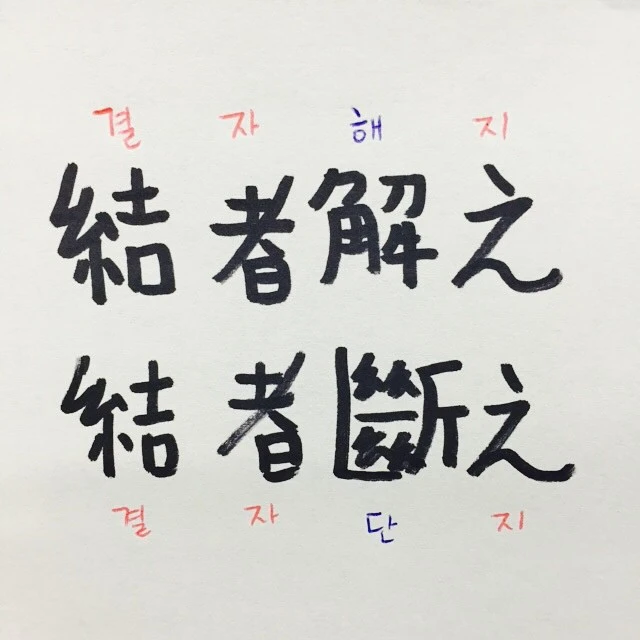 결 자 해 지
結者解之
結者斷之
결 자 단 지